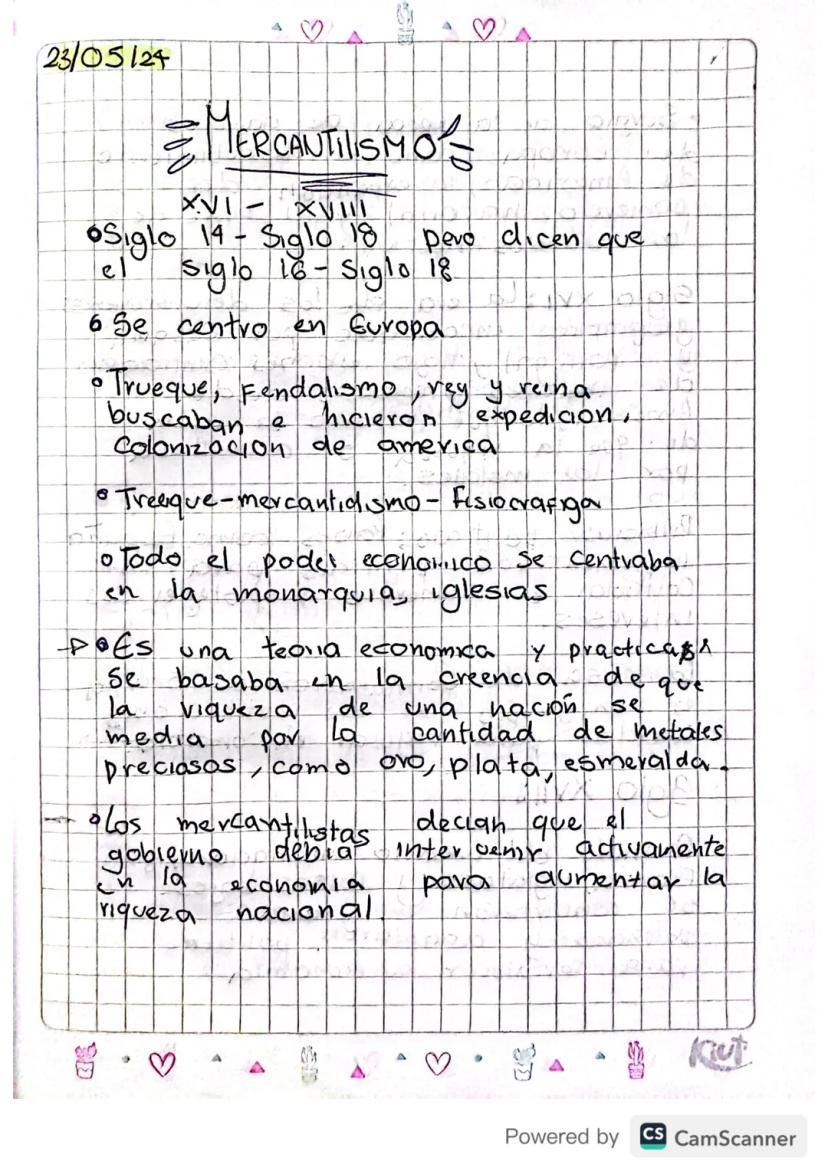 23/05/24
MERCANTILISMO
XVI - XVIII
Siglo 14 - Siglo 18 pero dicen que
el siglo 16 - Siglo 18
Se centro en Europa
Trueque, Fendalismo, rey y reina
buscaban e hicieron expedición,
Colonizacion de america
Treeque-mercantidismo - Fisiocrafiga
Todo el poder economico se centraba
en la monarquia, iglesias
Es una teoria economica y practicas
Se basaba en la creencia de que
la riqueza de una nación se
media por la cantidad de metales
preciosos, como oro, plata, esmeralda.
Los mercantilistas decian que el
gobierno debia intervenir activamente
en la economia para aumentar la
riqueza nacional.
Kiut
Powered by CS CamScanner